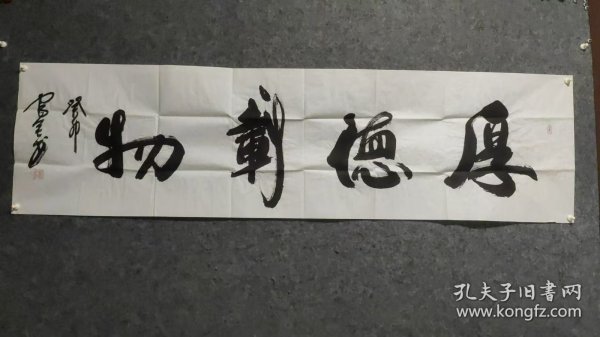 厚德載物
癸卯
孔夫子旧書网
www.kongfz.com